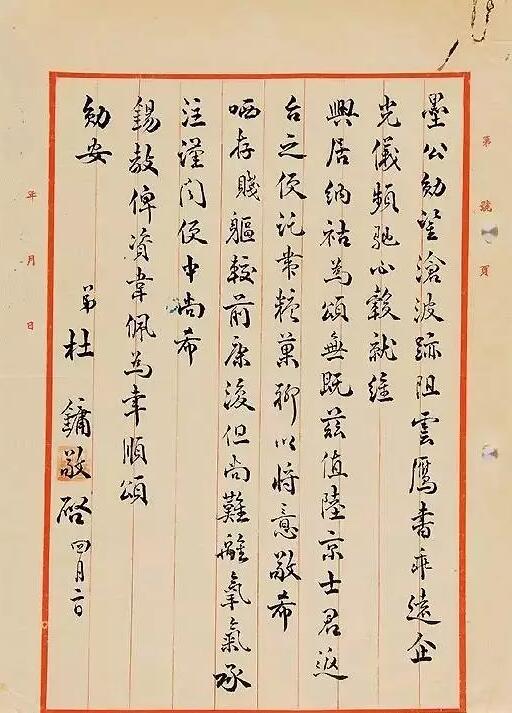 第 號 頁
墨公勛鑒滄波跡阻雲鴈書乖遠企
光儀頻馳心轂就維
興居納祜為頌無既茲值陸京士君返
台之便託帶糉菓聊以將意敬希
哂存賤軀較前康復但尚難離氧氣承
注謹聞便中尚希
錫教俾資韋佩為幸順頌
勛安
弟杜鏞敬啓 四月二日
年 月 日